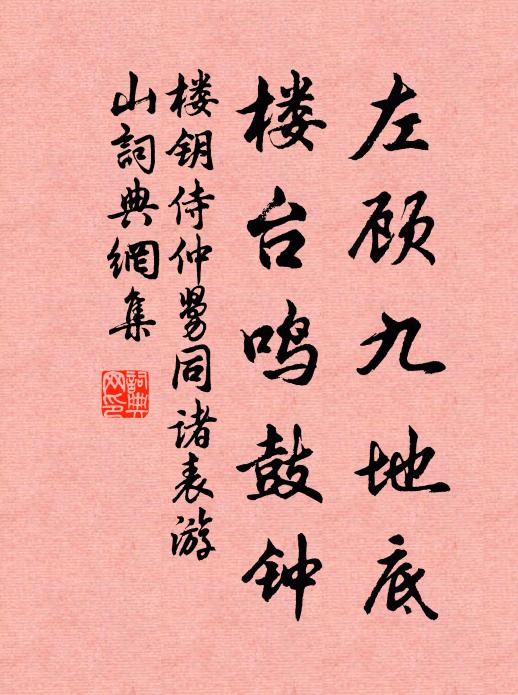 左顾九地底
楼台鸣鼓钟
楼钥侍仲舅同诸表游
山詞典網集
詞典
网印